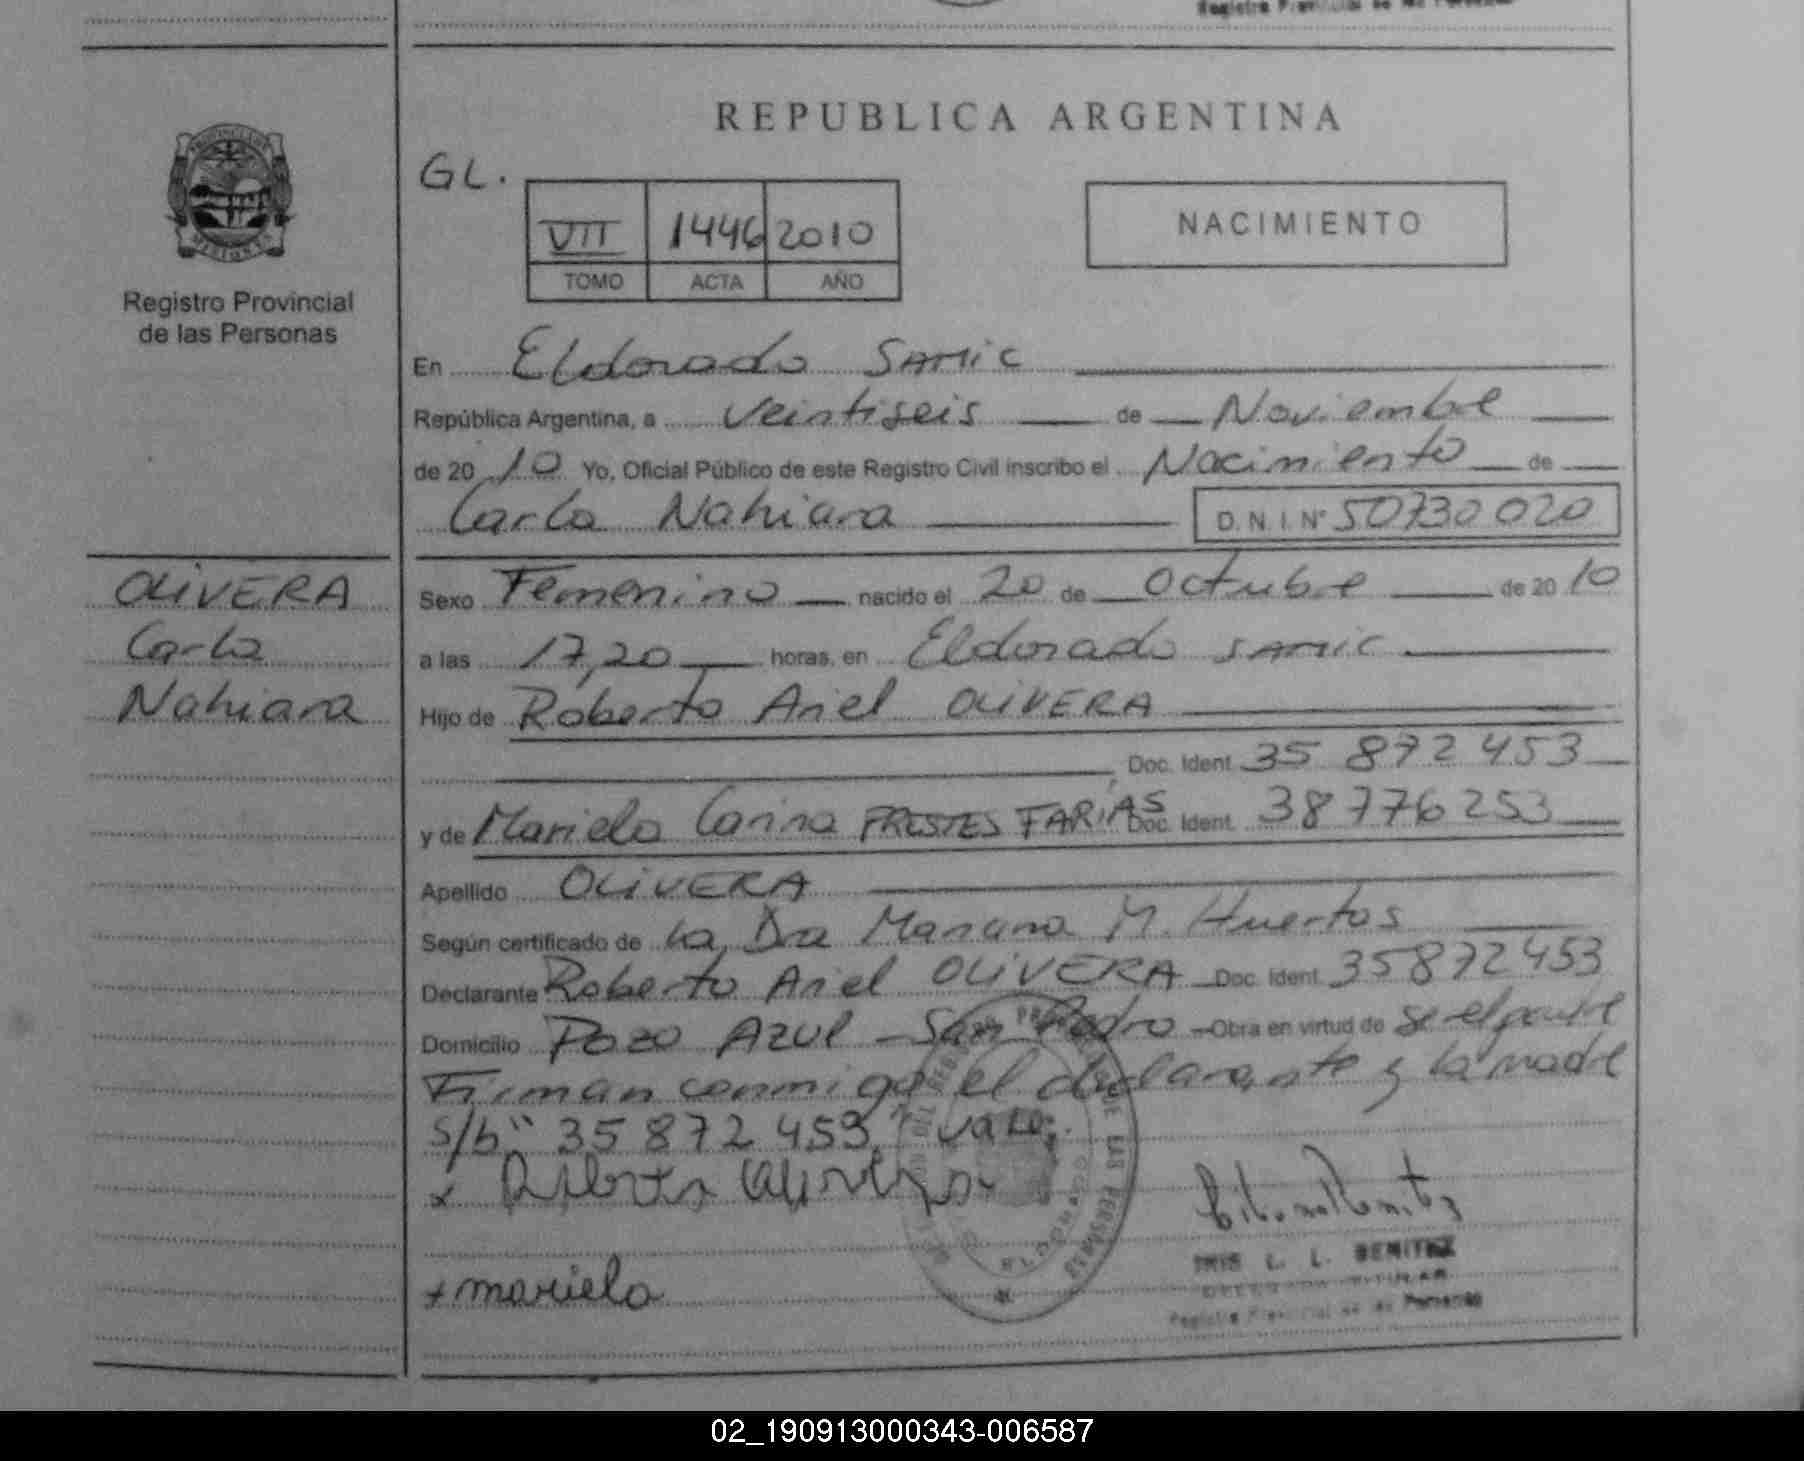 Registro Provincial de las Personas
REPUBLICA ARGENTINA
GL.
VII 1446 2010
TOMO ACTA AÑO
NACIMIENTO
PROVINCIA DE MISIONES
Registro Provincial
de las Personas
OLIVERA
Carla
Nahiara
En Eldorado SAMIC
República Argentina, a Veintiseis de Noviembre
de 20 10 Yo, Oficial Público de este Registro Civil inscribo el Nacimiento de
Carla Nahiara D.N.I.Nº 50730020
Sexo Femenino nacido el 20 de Octubre de 20 10
a las 17,20 horas, en Eldorado SAMIC
Hijo de Roberto Ariel OLIVERA
Doc. Ident. 35 872 453
y de Mariela Carina PRESTES FARIAS Doc. Ident. 38776253
Apellido OLIVERA
Según certificado de La Dra Mariana M. Huertos
Declarante Roberto Ariel OLIVERA Doc. Ident. 35872453
Domicilio POZO AZUL - San Pedro - Obra en virtud de se el padre
Firman conmigo el declarante y la madre
s/b " 35 872 453 " vale.
x
+ mariela
IRIS L. L. BENITEZ
Registro Provincial de las Personas
02_190913000343-006587